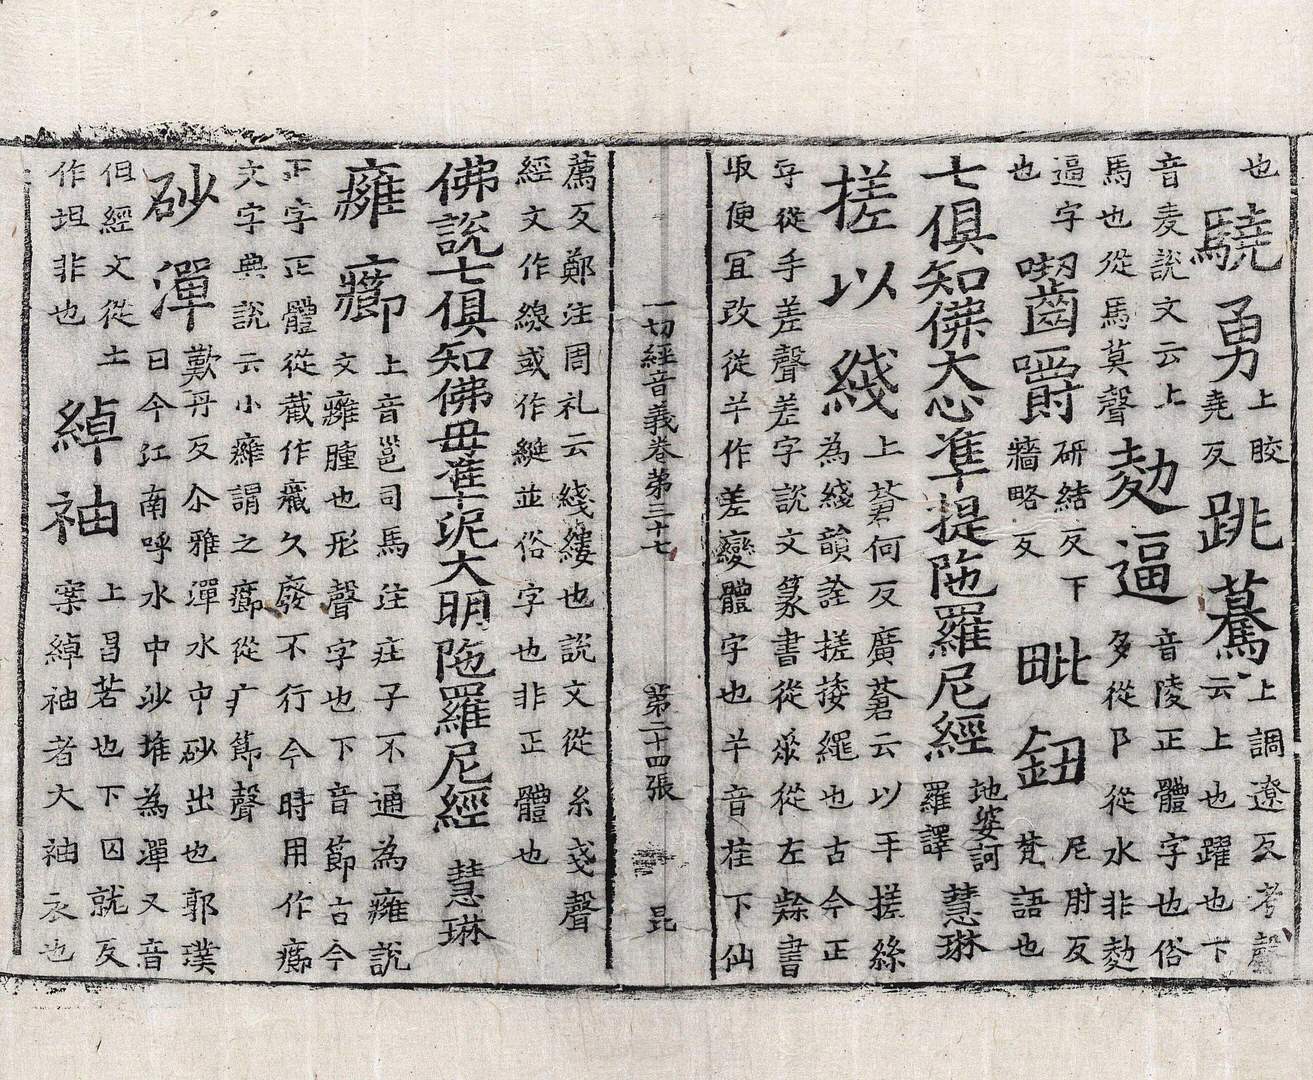 也 驍勇 上胶
堯反
跳驀 上調遼反考聲
云上也躍也下
音麦說文云上
馬也從馬莫聲 勬逼 音陵正體字也俗
多從阝從水非勬
逼字
也 齧嚼 研結反下
牆略反
毗鈕 尼肘反
梵語也
七俱知佛大心准提陁羅尼經 地婆訶
羅譯 慧琳
搓以綫 上蒼何反廣蒼云以手搓絲
為綫韻詮搓捼繩也古今正
字從手差聲差字說文篆書從𠂹從左隸書
取便冝改從𦍌作差變體字也𦍌音𦮃下仙
一切經音義卷第三十七 第二十四張 昆
薦反鄭注周礼云綫縷也說文從糸戔聲
經文作線或作綖並俗字也非正體也
佛說七俱知佛毋准泥大明陁羅尼經 慧琳
癰癤 上音邕司馬注庄子不通為癰說
文癰腫也形聲字也下音節古今
正字正體從截作㘜久廢不行今時用作癤
文字典說云小癰謂之癤從疒節聲
砂潬 歎丹反尒雅潬水中砂出也郭璞
曰今江南呼水中沙堆為潬又音
但經文從土
作坦非也 綽袖 上昌若也下囚就反
案綽袖者大袖衣也